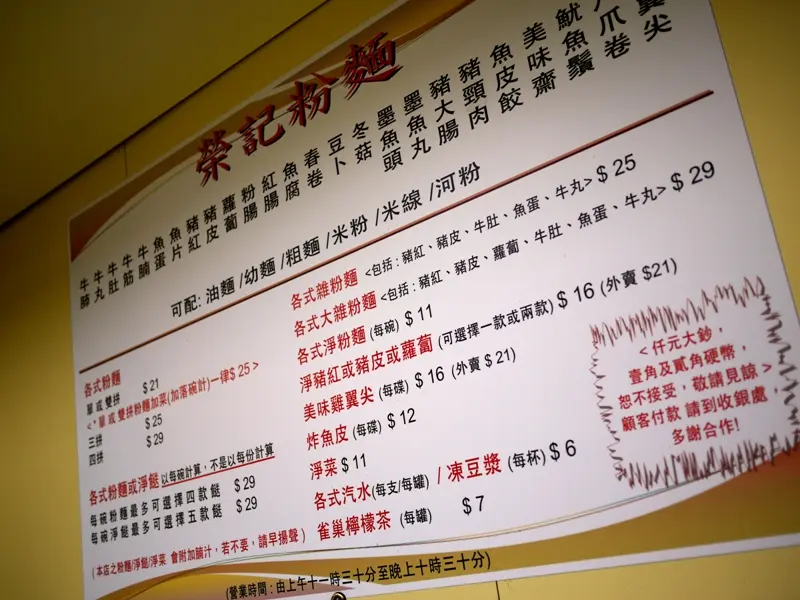 榮記粉麵
牛肺
牛丸
牛肚
牛筋
牛腩
魚蛋
魚片
豬紅
豬皮
蘿蔔
粉腸
紅腸
魚腐
春卷
豆卜
冬菇
墨魚
墨魚丸
豬大腸
豬頸肉
魚皮餃
美味齋
魷魚鬚
可配: 油麵 /幼麵 /粗麵 /米粉 /米線 /河粉
各式粉麵
單或雙拼 $ 21
<*單或雙拼粉麵加菜(加落碗計)一律$ 25 >
三拼 $ 25
四拼 $ 29
各式粉麵或淨餸 以每碗計算，不是以每份計算
每碗粉麵最多可選擇四款餸 $ 29
每碗淨餸最多可選擇五款餸 $ 29
(本店之粉麵/淨餸/淨菜 會附加腩汁，若不要，請早揚聲)
各式雜粉麵 <包括 : 豬紅、豬皮、牛肚、魚蛋、牛丸> $ 25
各式大雜粉麵 <包括 : 豬紅、豬皮、蘿蔔、牛肚、魚蛋、牛丸> $ 29
各式淨粉麵 (每碗) $ 11
淨豬紅或豬皮或蘿蔔 (可選擇一款或兩款) $ 16 (外賣 $21)
美味雞翼尖 (每碟) $ 16 (外賣 $ 21)
炸魚皮 (每碟) $ 12
淨菜 $ 11
各式汽水(每支/每罐) / 凍豆漿 (每杯) $ 6
雀巢檸檬茶 (每罐) $ 7
< 仟元大鈔，
壹角及貳角硬幣，
恕不接受，敬請見諒 >
顧客付款 請到收銀處，
多謝合作!
(營業時間 : 由上午十一時三十分至晚上十時三十分)